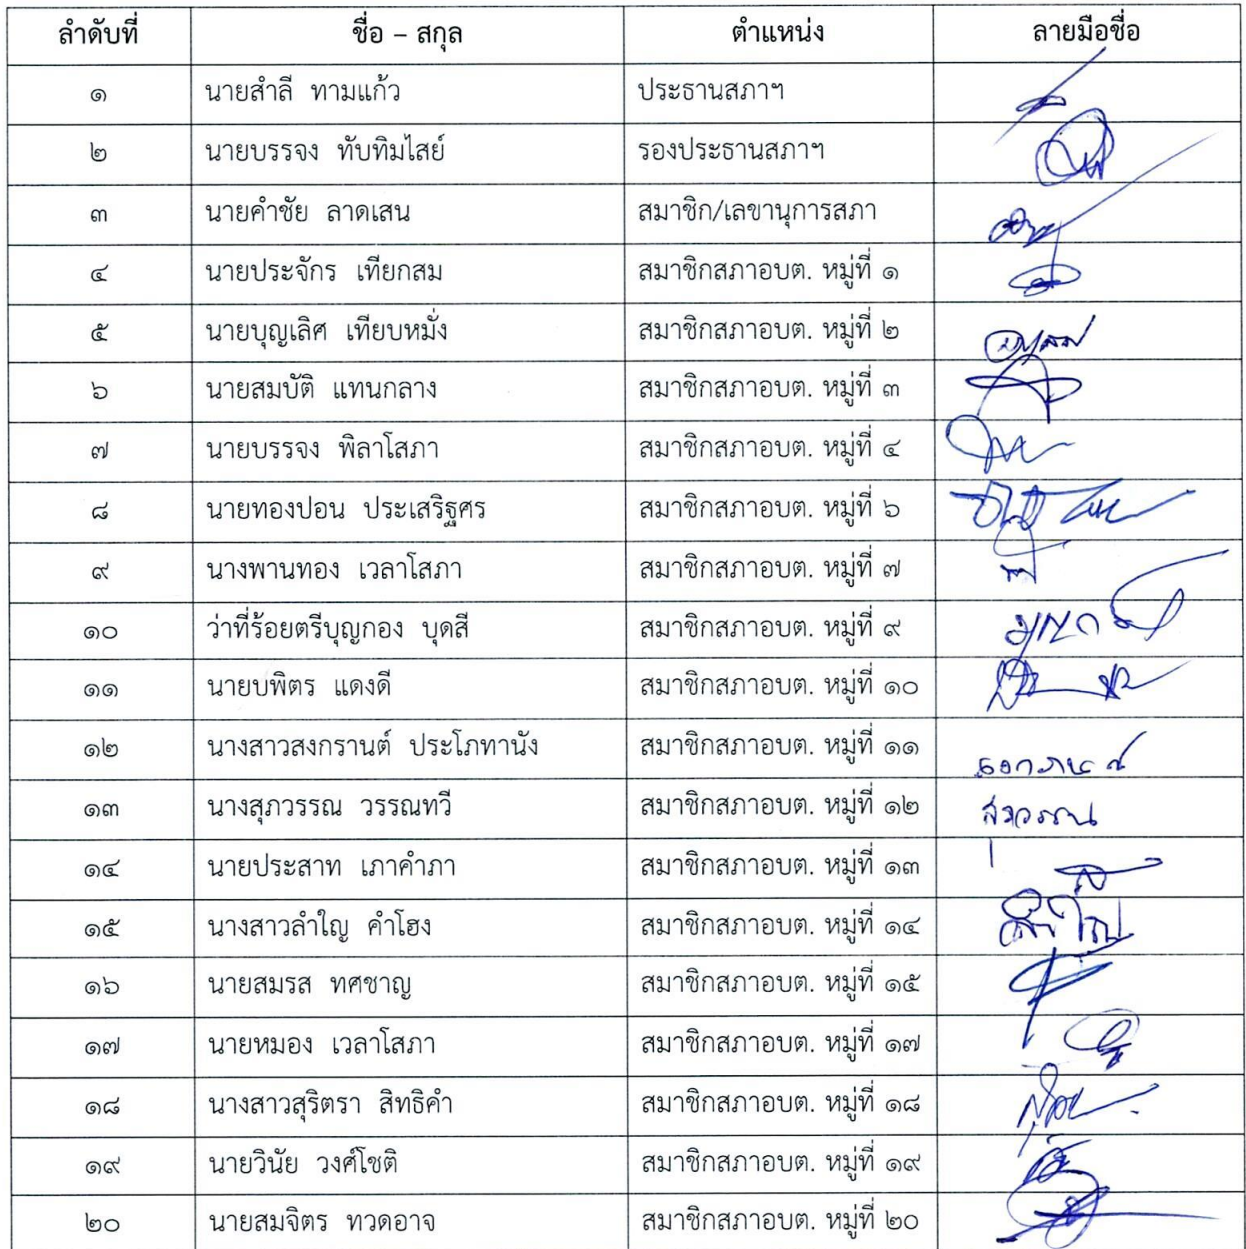 ลำดับที่ ชื่อ – สกุล ตำแหน่ง ลายมือชื่อ
๑ นายสำลี ทามแก้ว ประธานสภาฯ
๒ นายบรรจง ทับทิมไสย์ รองประธานสภาฯ
๓ นายคำชัย ลาดเสน สมาชิก/เลขานุการสภา
๔ นายประจักร เทียกสม สมาชิกสภาอบต. หมู่ที่ ๑
๕ นายบุญเลิศ เทียบหมั่ง สมาชิกสภาอบต. หมู่ที่ ๒
๖ นายสมบัติ แทนกลาง สมาชิกสภาอบต. หมู่ที่ ๓
๗ นายบรรจง พิลาโสภา สมาชิกสภาอบต. หมู่ที่ ๔
๘ นายทองปอน ประเสริฐศร สมาชิกสภาอบต. หมู่ที่ ๖
๙ นางพานทอง เวลาโสภา สมาชิกสภาอบต. หมู่ที่ ๗
๑๐ ว่าที่ร้อยตรีบุญกอง บุดสี สมาชิกสภาอบต. หมู่ที่ ๙
๑๑ นายบพิตร แดงดี สมาชิกสภาอบต. หมู่ที่ ๑๐
๑๒ นางสาวสงกรานต์ ประโภทานัง สมาชิกสภาอบต. หมู่ที่ ๑๑
๑๓ นางสุภวรรณ วรรณทวี สมาชิกสภาอบต. หมู่ที่ ๑๒
๑๔ นายประสาท เภาคำภา สมาชิกสภาอบต. หมู่ที่ ๑๓
๑๕ นางสาวลำใญ คำโฮง สมาชิกสภาอบต. หมู่ที่ ๑๔ ลำใญ
๑๖ นายสมรส ทศชาญ สมาชิกสภาอบต. หมู่ที่ ๑๕
๑๗ นายหมอง เวลาโสภา สมาชิกสภาอบต. หมู่ที่ ๑๗
๑๘ นางสาวสุริตรา สิทธิคำ สมาชิกสภาอบต. หมู่ที่ ๑๘
๑๙ นายวินัย วงศ์โชติ สมาชิกสภาอบต. หมู่ที่ ๑๙
๒๐ นายสมจิตร ทวดอาจ สมาชิกสภาอบต. หมู่ที่ ๒๐